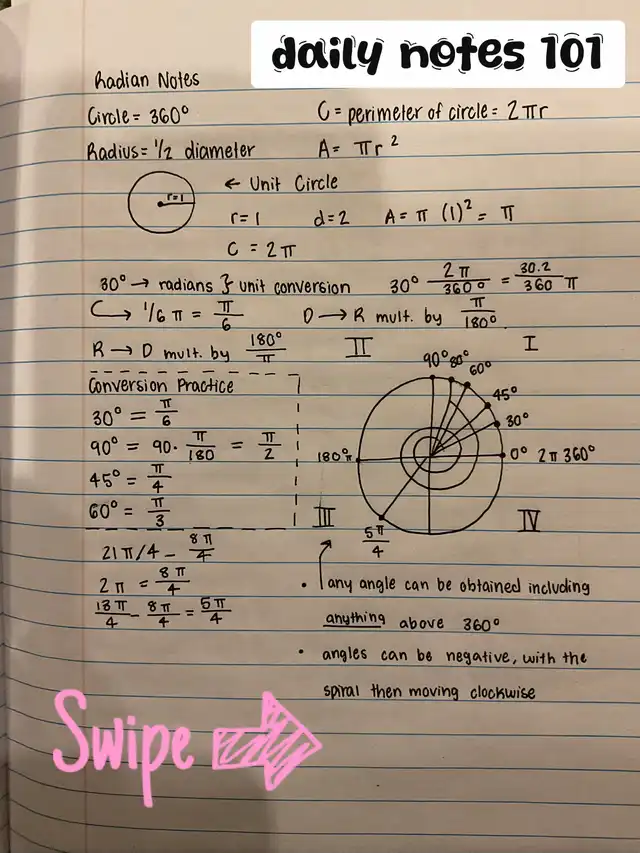 daily notes 101
Radian Notes
Circle = 360°
C = perimeter of circle = 2πr
Radius = 1/2 diameter
A = πr²
r=1
← Unit Circle
r=1 d=2 A = π (1)² = π
C = 2π
30° → radians } unit conversion 30° 2π/360° = 30·2/360 π
↳ 1/6 π = π/6 D → R mult. by π/180°
R → D mult. by 180°/π
Conversion Practice
30° = π/6
90° = 90· π/180 = π/2
45° = π/4
60° = π/3
21π/4 - 8π/4
2π = 8π/4
13π/4 - 8π/4 = 5π/4
II
I
90° 80° 60°
45°
30°
180° π
0° 2π 360°
III
IV
5π/4
• any angle can be obtained including
anything above 360°
• angles can be negative, with the
spiral then moving clockwise
Swipe